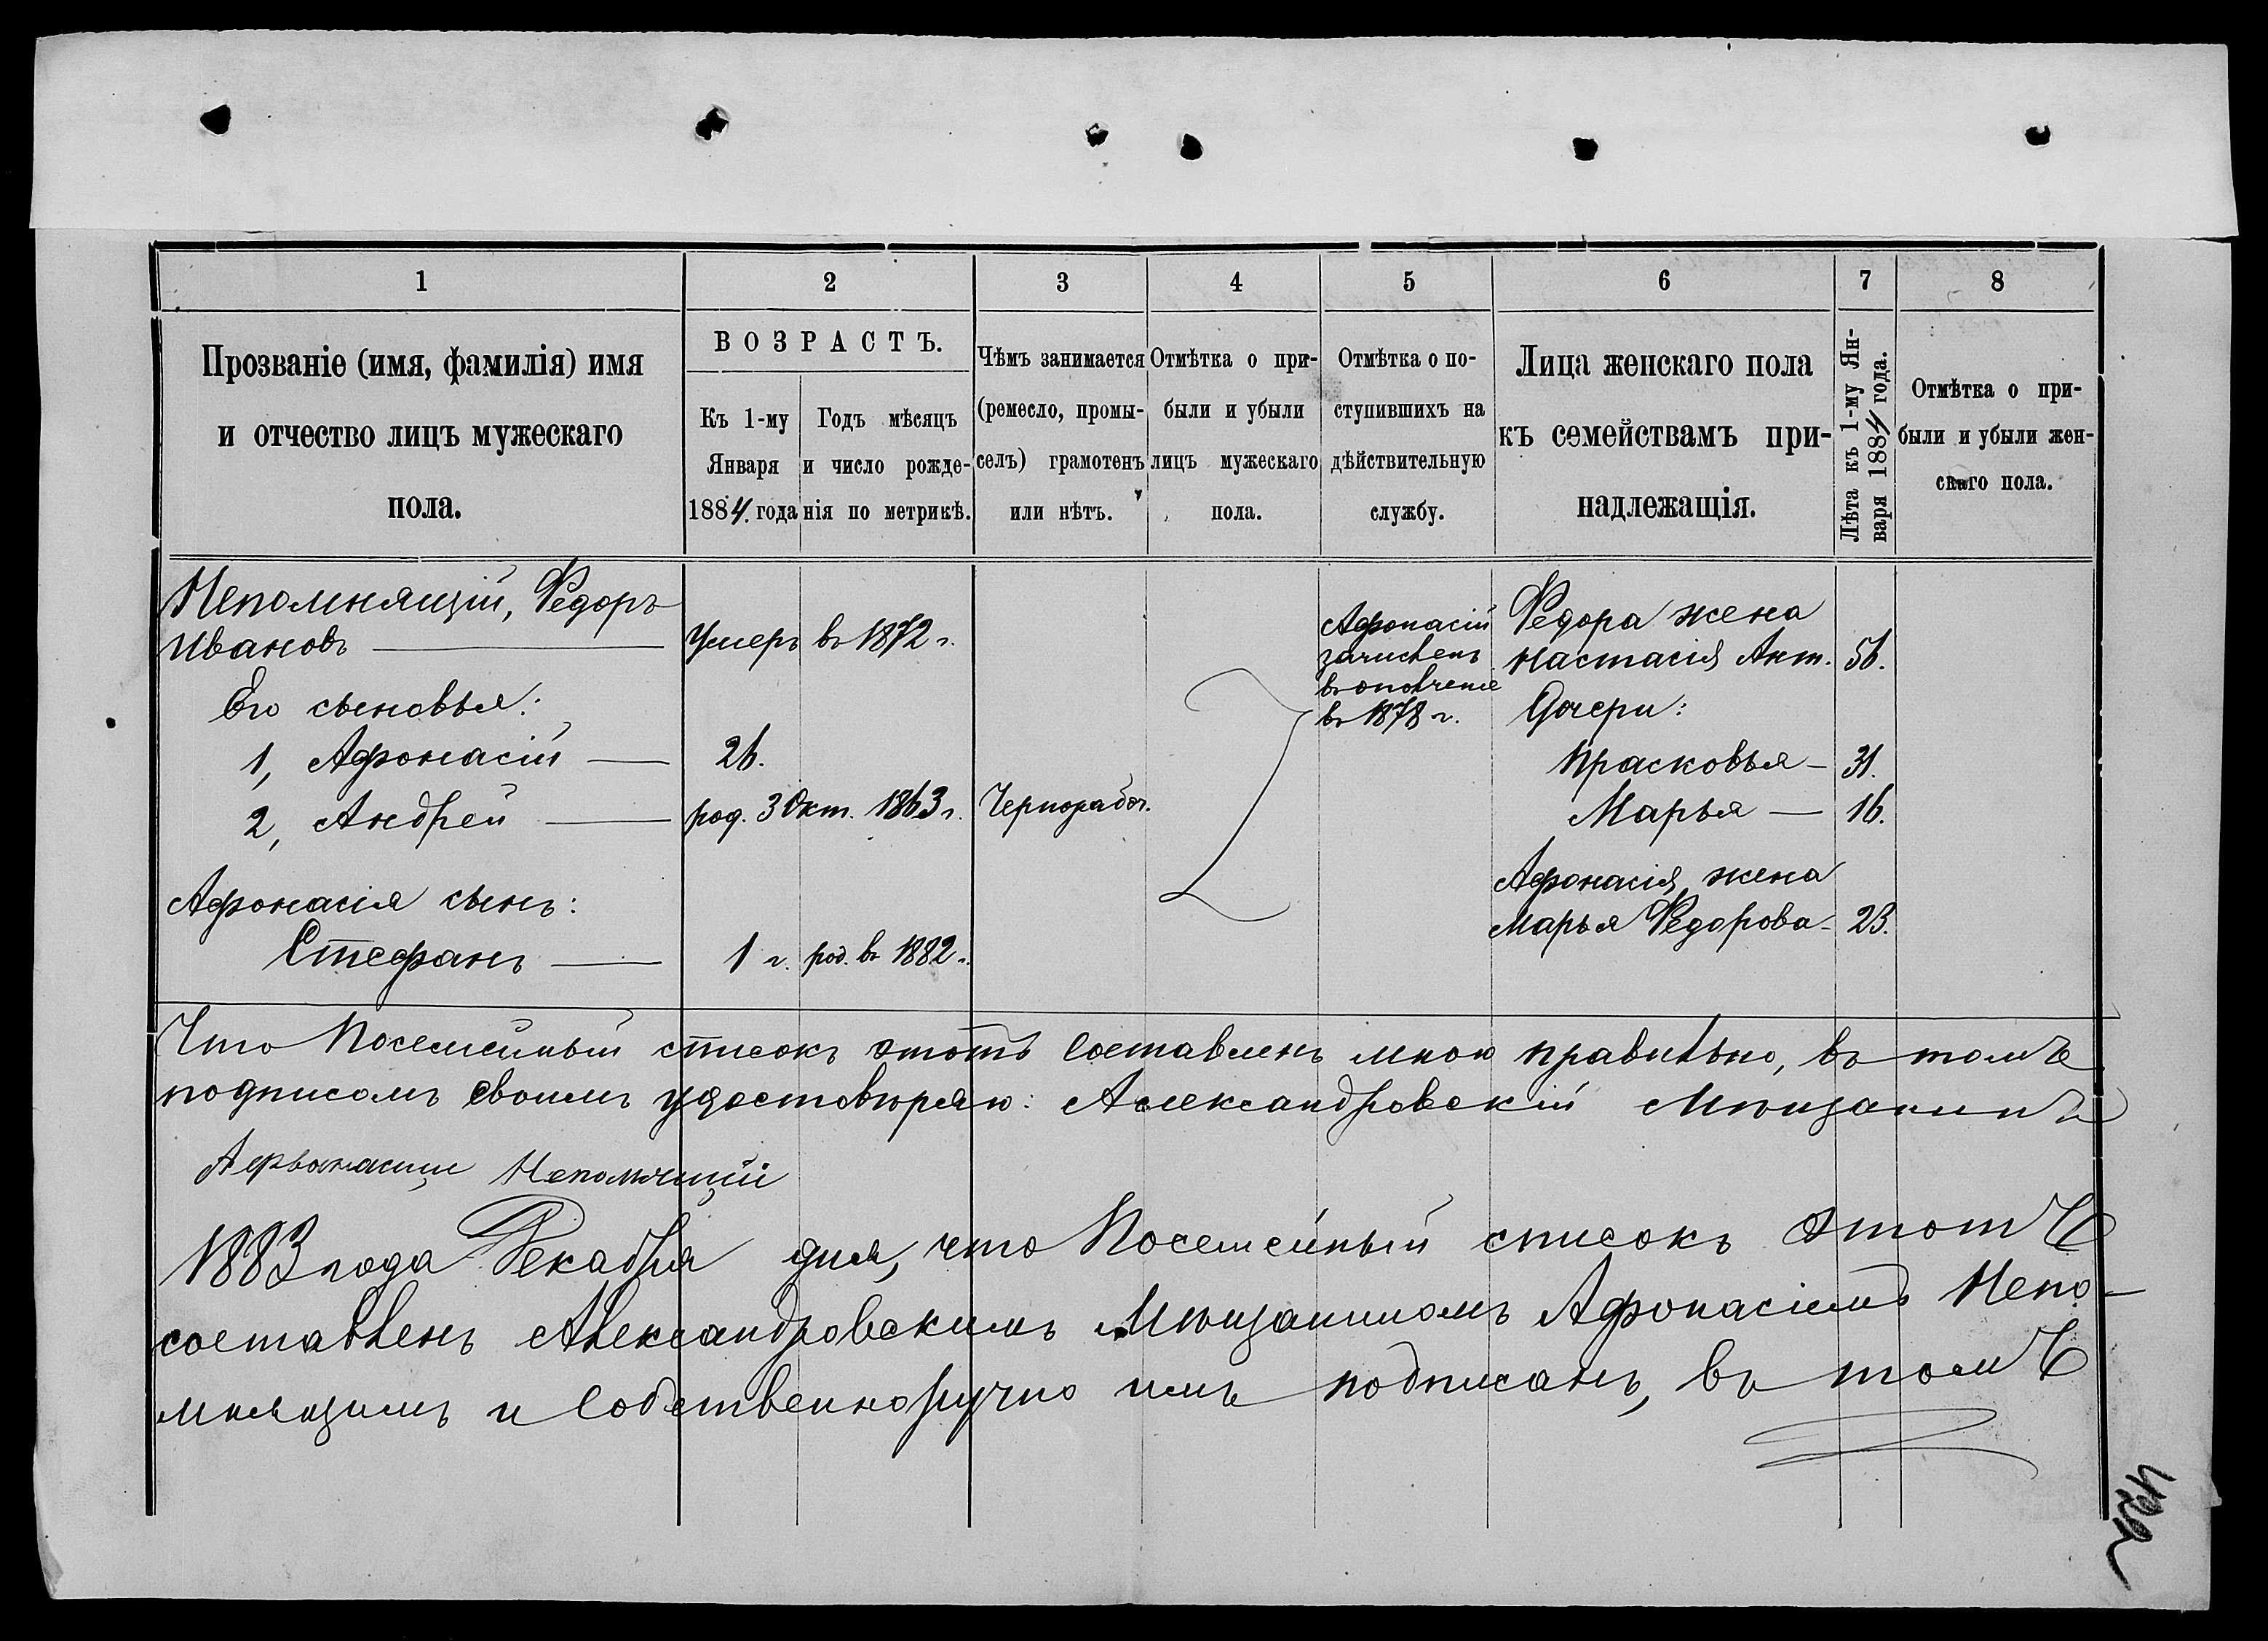 1 2 3 4 5 6 7 8
Прозваніе (имя, фамилія) имя
и отчество лицъ мужескаго
пола.
ВОЗРАСТЪ.
Къ 1-му
Января
1884. года
Годъ мѣсяцъ
и число рожде-
нія по метрикѣ.
Чѣмъ занимается
(ремесло, промы-
селъ) грамотенъ
или нѣтъ.
Отмѣтка о при-
были и убыли
лицъ мужескаго
пола.
Отмѣтка о по-
ступившихъ на
дѣйствительную
службу.
Лица женскаго пола
къ семействамъ при-
надлежащія.
Лѣта къ 1-му Ян-
варя 1884 года.
Отмѣтка о при-
были и убыли жен-
скаго пола.
Непомнящій, Федоръ
Ивановъ — умеръ въ 1872 г.
Его сыновья:
1, Афонасій — 26.
2, Андрей — род. 3 Окт. 1863 г. Чернорабоч.
Афонасія сынъ:
Стефанъ — 1 г. род. въ 1882 г.
Афонасій
зачисленъ
въ ополченіе
въ 1878 г.
Федора жена
Настасія Ант. 56.
Дочери:
Прасковья — 31.
Марья — 16.
Афонасія жена
Марья Федорова — 23.
Что Посемейный списокъ этотъ составленъ мною правильно, въ томъ
подписомъ своимъ удостовѣряю: Александровскій Мѣщанинъ
Афонасий Непомнищій
1883 года Декабря дня, что Посемейный списокъ этотъ
составленъ Александровскимъ Мѣщаниномъ Афонасіемъ Непо-
мнящимъ и собственноручно имъ подписанъ, въ томъ